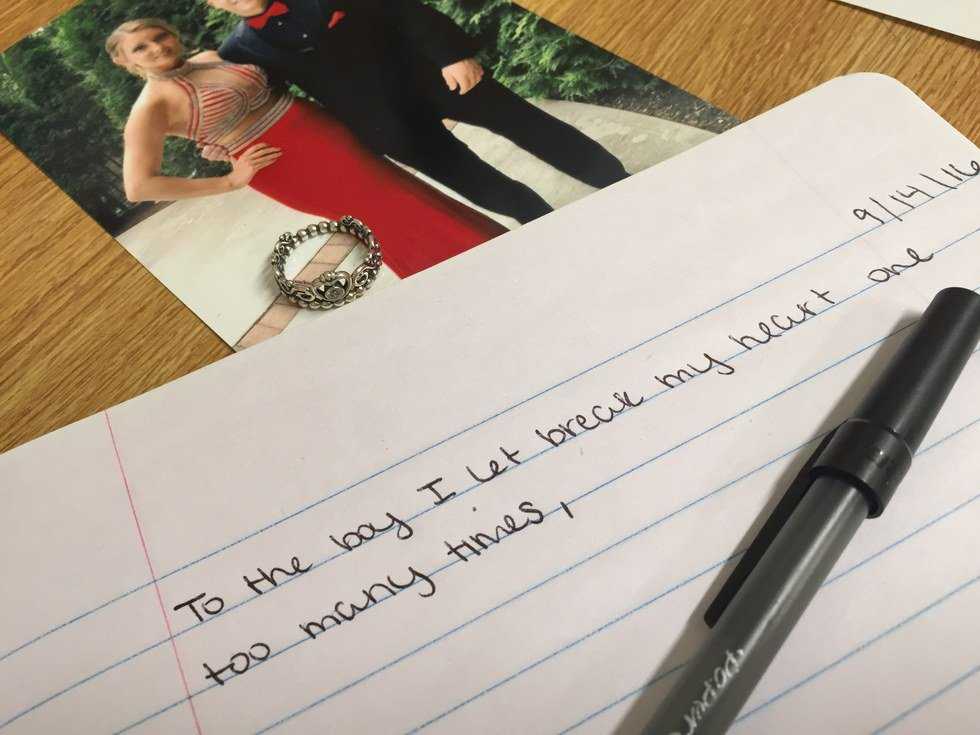 9/14/16
To the boy I let break my heart one
too many times,